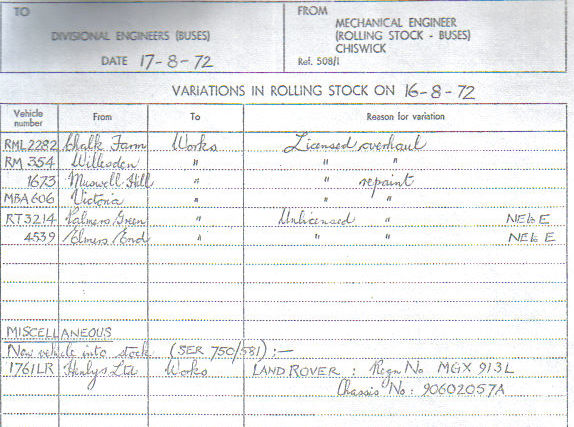 TO
DIVISIONAL ENGINEERS (BUSES)
DATE 17-8-72
FROM
MECHANICAL ENGINEER
(ROLLING STOCK - BUSES)
CHISWICK
Ref. 508/1
VARIATIONS IN ROLLING STOCK ON 16-8-72
Vehicle number From To Reason for variation
RML2282 Chalk Farm Works Licensed overhaul
RM 354 Willesden " " "
1673 Muswell Hill " " repaint
MBA606 Victoria " " "
RT3214 Palmers Green " Unlicensed " NELE
4539 Elmers End " " " NELE
MISCELLANEOUS
New vehicle into stock (SER 750/581) :-
1761LR Henlys Ltd Works LAND ROVER : Regn No MGX 913L
Chassis No : 90602057A